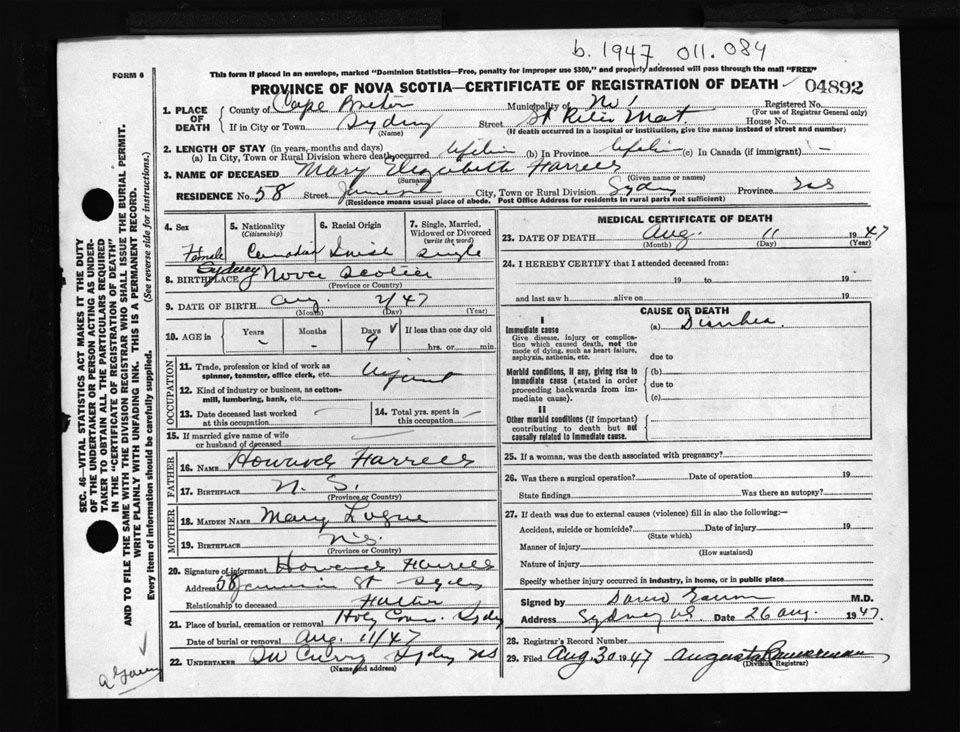 b. 1947 011.084
FORM 6
This form if placed in an envelope, marked "Dominion Statistics—Free, penalty for improper use $300," and properly addressed will pass through the mail "FREE"
PROVINCE OF NOVA SCOTIA—CERTIFICATE OF REGISTRATION OF DEATH 04892
1. PLACE OF DEATH
County of Cape Breton Municipality of Registered No.
(For use of Registrar General only)
If in City or Town Sydney Street House No.
(Name) (If death occurred in a hospital or institution, give the name instead of street and number)
2. LENGTH OF STAY (in years, months and days)
(a) In City, Town or Rural Division where death occurred (b) In Province (c) In Canada (if immigrant)
3. NAME OF DECEASED Mary Elizabeth Farrell
(Surname) (Given name or names)
RESIDENCE No. 58 Street City, Town or Rural Division Sydney Province NS
(Residence means usual place of abode. Post Office Address for residents in rural parts not sufficient)
4. Sex
Female
5. Nationality
(Citizenship)
Canadian
6. Racial Origin
7. Single, Married, Widowed or Divorced
(write the word)
Single
8. BIRTHPLACE Sydney Nova Scotia
(Province or Country)
9. DATE OF BIRTH Aug 2/47
(Month) (Day) (Year)
10. AGE in Years - Months - Days 9 If less than one day old
hrs. or min.
OCCUPATION
11. Trade, profession or kind of work as spinner, teamster, office clerk, etc. Infant
12. Kind of industry or business, as cotton-mill, lumbering, bank, etc.
13. Date deceased last worked at this occupation
14. Total yrs. spent in this occupation
15. If married give name of wife or husband of deceased
FATHER
16. NAME Howard Farrell
17. BIRTHPLACE N. S.
(Province or Country)
MOTHER
18. MAIDEN NAME Mary Logue
19. BIRTHPLACE N.S.
(Province or Country)
20. Signature of informant Howard Farrell
Address 58 St Sydney
Relationship to deceased Father
21. Place of burial, cremation or removal Holy Cross Sydney
Date of burial or removal Aug. 11/47
22. UNDERTAKER Curry Sydney NS
(Name and address)
MEDICAL CERTIFICATE OF DEATH
23. DATE OF DEATH Aug. 11 1947
(Month) (Day) (Year)
24. I HEREBY CERTIFY that I attended deceased from:
19 to 19
and last saw h alive on 19
CAUSE OF DEATH
I
Immediate cause
Give disease, injury or complication which caused death, not the mode of dying, such as heart failure, asphyxia, asthenia, etc.
(a) Diarrhea
due to
Morbid conditions, if any, giving rise to immediate cause (stated in order proceeding backwards from immediate cause).
(b)
due to
(c)
II
Other morbid conditions (if important) contributing to death but not causally related to immediate cause.
25. If a woman, was the death associated with pregnancy?
26. Was there a surgical operation? Date of operation 19
State findings Was there an autopsy?
27. If death was due to external causes (violence) fill in also the following:—
Accident, suicide or homicide? Date of injury 19
(State which)
Manner of injury
(How sustained)
Nature of injury
Specify whether injury occurred in industry, in home, or in public place
Signed by M.D.
Address Sydney NS. Date 26 Aug. 1947
28. Registrar's Record Number
29. Filed Aug 30 1947 Augusta
(Division Registrar)
SEC. 46—VITAL STATISTICS ACT MAKES IT THE DUTY OF THE UNDERTAKER OR PERSON ACTING AS UNDERTAKER TO OBTAIN ALL THE PARTICULARS REQUIRED IN THE "CERTIFICATE OF REGISTRATION OF DEATH"
AND TO FILE THE SAME WITH THE DIVISION REGISTRAR WHO SHALL ISSUE THE BURIAL PERMIT.
WRITE PLAINLY WITH UNFADING INK. THIS IS A PERMANENT RECORD.
Every item of information should be carefully supplied. (See reverse side for instructions.)